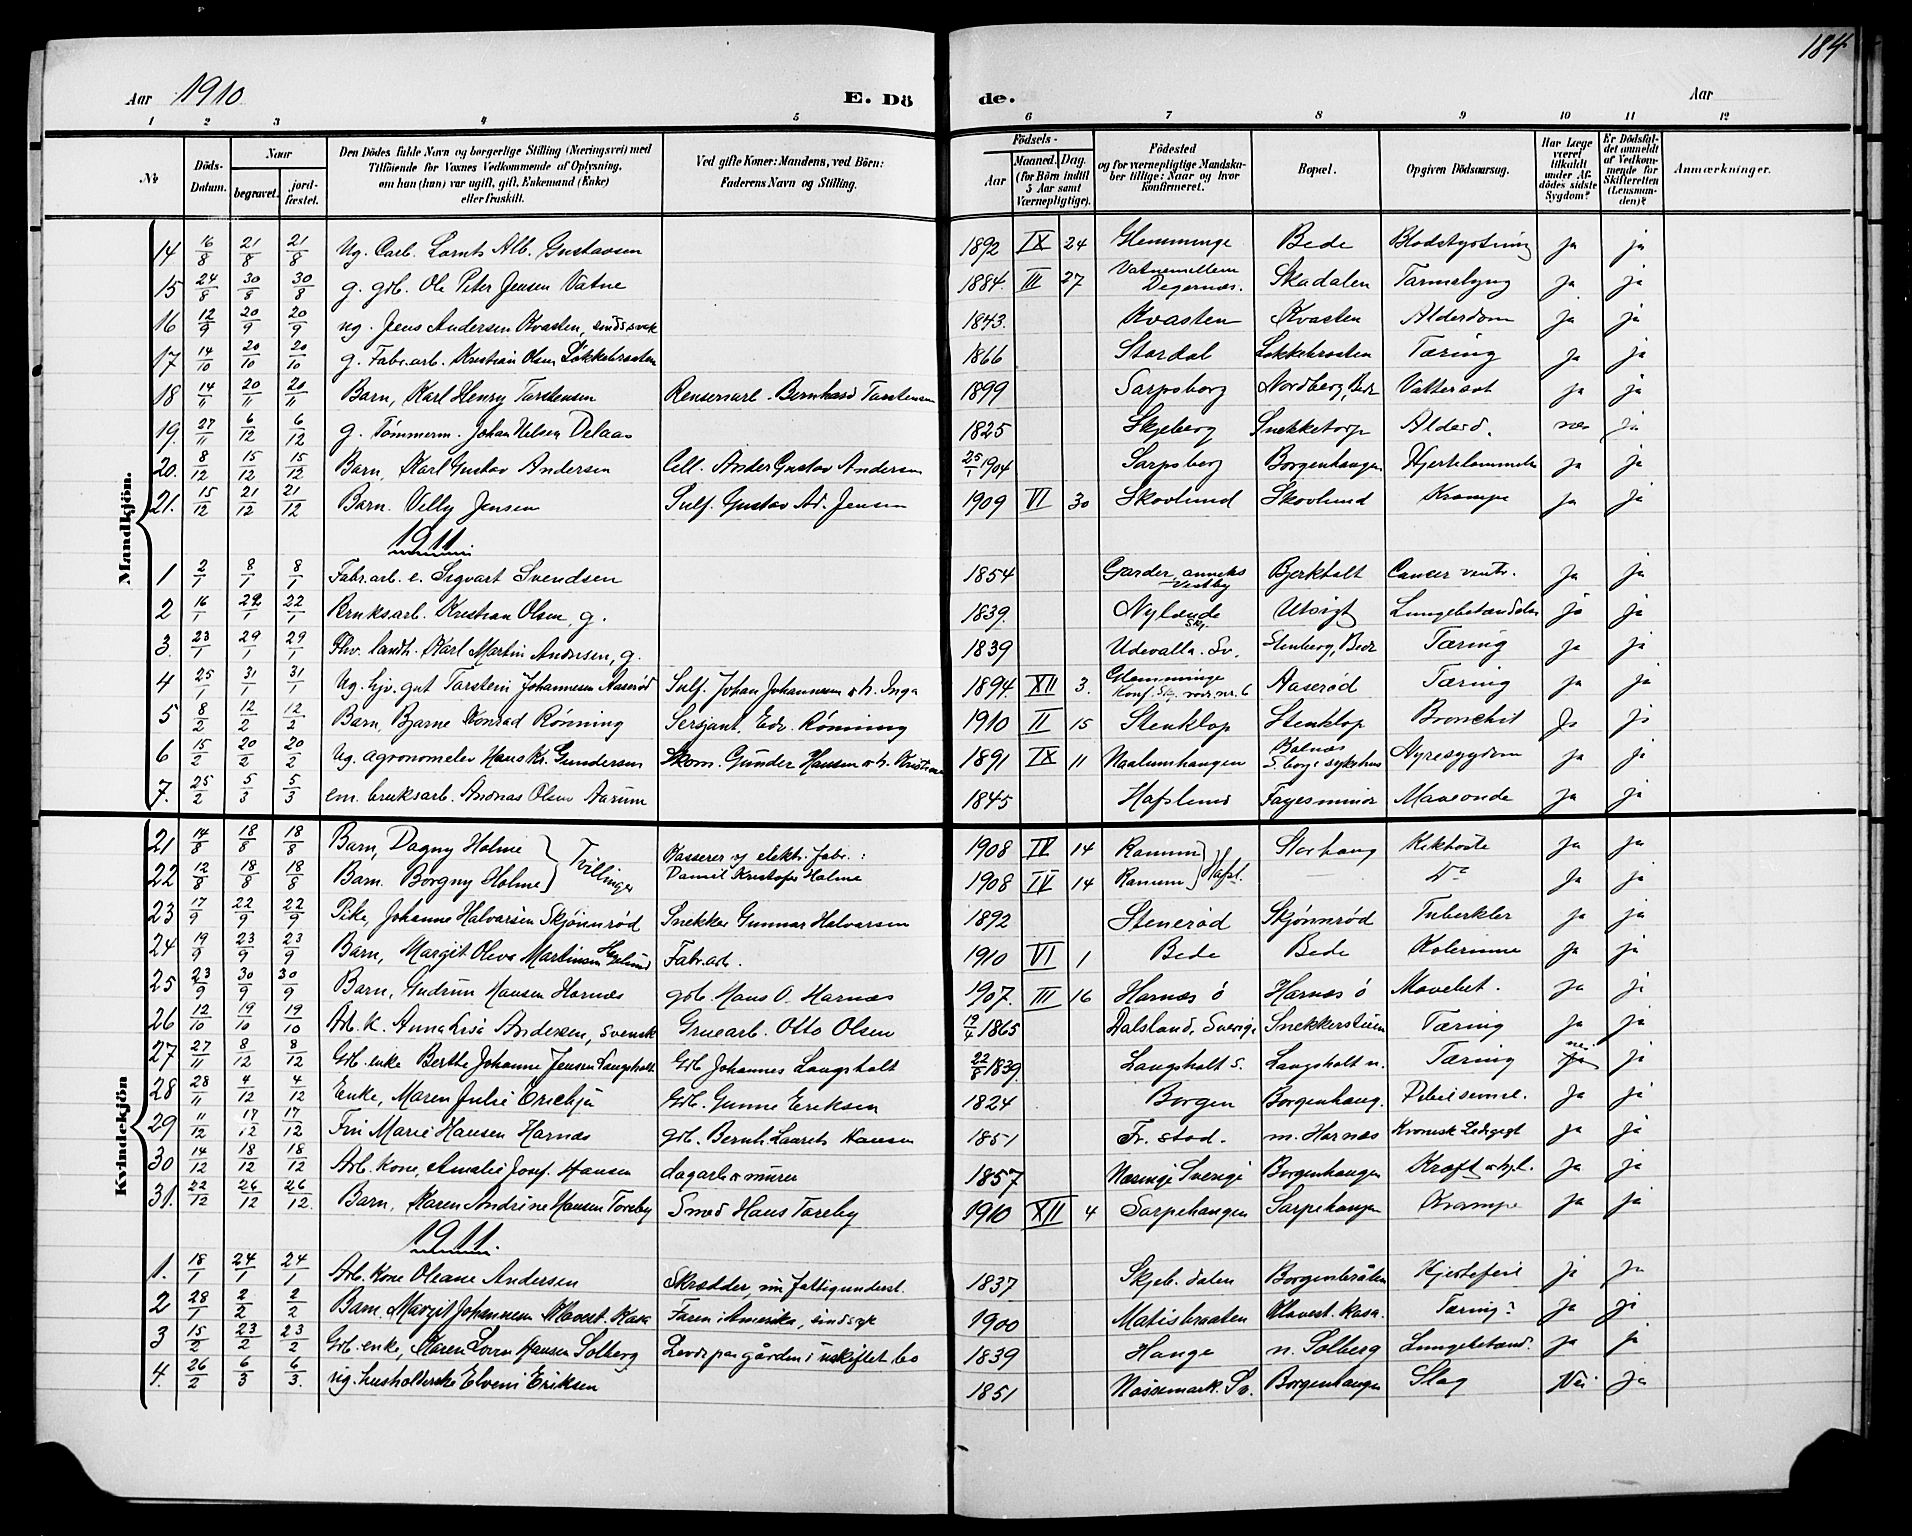 184
Aar 1910 E. Dö de. Aar
1 2 3 4 5 6 7 8 9 10 11 12
No Döds-Datum. Naar begravet. jord-fæstet. Den Dödes fulde Navn og borgerlige Stilling (Næringsvei) med Tilföiende for Voxnes Vedkommende af Oplysning, om han (hun) var ugift, gift, Enkemand (Enke) eller fraskilt. Ved gifte Koner: Mandens, ved Börn: Faderens Navn og Stilling. Födsels- Aar Maaned. Dag. (for Börn indtil 5 Aar samt Værnepligtige). Födested og for værnepligtige Mandska-ber tillige: Naar og hvor konfirmeret. Bopæl. Opgiven Dödsaarsag. Har Læge været tilkaldt under Af-dödes sidste Sygdom? Er Dödsfal-det anmeldt af Vedkom-mende for Skifteretten (Lensman-den)? Anmærkninger.
Mandkjön.
14 16/8 21/8 21/8 Ug. Carl Lornts Alb. Gustavsen 1892 IX 24 Glemminge Bede Blodstyrtning ja ja
15 24/8 30/8 30/8 g. gdb. Ole Peter Jensen Vatne 1884. III 27 Vatnemellem Degernæs. Skadalen Tarmslyng ja ja
16 12/9 20/9 20/9 ug. Jens Andersen Kvasten, sindssvak 1843. Kvasten Kvasten Alderdom ja ja
17 14/10 20/10 20/10 g. Fabr.arb. Kristian Olsen Løkkebraaten 1866 Stordal Løkkebraaten Tæring ja ja
18 14/11 20/11 20/11 Barn, Karl Henry Torstensen Renseriarb. Bernhard Torstensen 1899 Sarpsborg Nordberg, Bede Vattersot ja ja
19. 27/11 6/12 6/12 g. Tømmerm. Johan Nilsen Delaas 1825 Skjeberg Snekketorp Alderd. nei ja
20. 8/12 15/12 15/12 Barn, Karl Gustav Andersen Cell. Ander Gustav Andersen 25/1 1904 Sarpsborg Borgenhaugen Hjertelammelse ja ja
21. 15/12 21/12 21/12 Barn. Villy Jensen Sulf. Gustav Ad. Jensen 1909 VI 30 Skovlund Skovlund Krampe ja ja
1911
1 2/1 8/1 8/1 Fabr.arb. e. Sigvart Svendsen 1854 Garder, anneks Vestby Bjerkholt Cancer ventr. ja ja
2 16/1 22/1 22/1 Bruksarb. Kristian Olsen, g. 1839. Nylænde Skj. Utsigt Lungebetændelse ja ja
3. 23/1 29/1 29/1 Fhv. landh. Karl Martin Andersen, g. 1839 Udevalla. Sv. Stenberg, Bede Tæring ja ja
4 25/1 31/1 31/1 Ug. hjv. gut Torstein Johannesen Aaserød Sulf. Johan Johannesen o. h. Inga 1894. XII 3. Glemminge Konf. Skj. Aaserød Tæring ja ja
5 8/2 12/2 12/2 Barn, Bjarne Konrad Rønning Sersjant Edv. Rønning 1910 II 15 Stenklop Stenklop Bronchit ja ja
6 15/2 20/2 20/2 Ug. agronomelev Hans Kr. Gundersen Skom. Gunder Hansen o. h. Kristiane 1891 IX 11 Naalumhaugen S.borg sykehus Nyresygdom ja ja
7. 25/2 5/3 5/3 em. bruksarb. Andreas Olsen Aarum 1845 Hafslund Fagesminde Maveonde ja ja
Kvindekjön
21 14/8 18/8 18/8 Barn, Dagny Holme Tvillinger Kasserer v/ elektr. fabr.: 1908 IV 14 Ranum Hafsl. Storhaug Kikhoste ja ja
22 12/8 18/8 18/8 Barn. Borgny Holme Daniel Kristofer Holme 1908 IV 14 Ranum Do ja ja
23 17/9 22/9 22/9 Pike, Johanne Halvorsen Skjønnerød Snekker Gunnar Halvorsen 1892 Stenerød Skjønnrød Tuberkler ja ja
24 19/9 23/9 23/9 Barn, Margit Oleva Martinsen Fabr.arb. 1910 VI 1 Bede Bede Kolerinne ja ja
25 23/9 30/9 30/9 Barn, Gudrun Hansen Hornæs gdb. Hans O. Hornæs 1907. III 16 Hornæs ø Hornæs ø Mavebet. ja ja
26 12/10 19/10 19/10 Arb. K. Anna Lisa Andersen, svensk Gruearb. Otto Olsen 19/4 1865 Dalsland, Sverige Snekkerstuen Tæring ja ja
27 27/11 8/12 8/12 Gdb. enke Berthe Johanne Jensen Langsholt Gdb. Johannes Langsholt 22/8 1839. Langsholt s. Langsholt n. Tæring nei ja
28 28/11 4/12 4/12 Enke, Maren Julie Gdb. Gunne Eriksen 1824 Borgen Borgenhaug. ja ja
29 11/12 17/12 17/12 Fru Marie Hansen Hornæs gdb. Bernh. Laurets Hansen 1851 Fr. stad. m. Hornæs Kronisk Ledgegt ja ja
30 14/12 18/12 18/12 Arb. Kone, Amalie Josef. Hansen dagarb. o. murer 1857 Næsinge Sverige Borgenhaugen Kræft ja ja
31. 22/12 26/12 26/12. Barn, Karen Andrine Hansen Toreby Smed Hans Toreby 1910 XII 4 Sarpehaugen Sarpehaugen Krampe ja ja
1911
1. 18/1 24/1 24/1 Arb. Kone Oleane Andersen Skrædder, nu fattigunderst. 1837 Skjeb. dalen Borgenbråten Hjertefeil ja ja
2 28/1 2/2 2/2 Barn, Margit Johannesen Klavest. Kasa Faren i Amerika, sindssyk 1900 Matisbraaten Klavest. kasa. Tæring? ja ja
3 15/2 23/2 23/2 Gdb. enke, Maren Lovise Hansen Solberg Levde paa gården i uskiftet bo 1839 Hauge n. Solberg Lungebetænd. ja ja
4. 26/2 6/3 6/3. ug. husholderske Elveni Eriksen 1851 Nössemark. Sv. Borgenhaugen Slag Nei ja